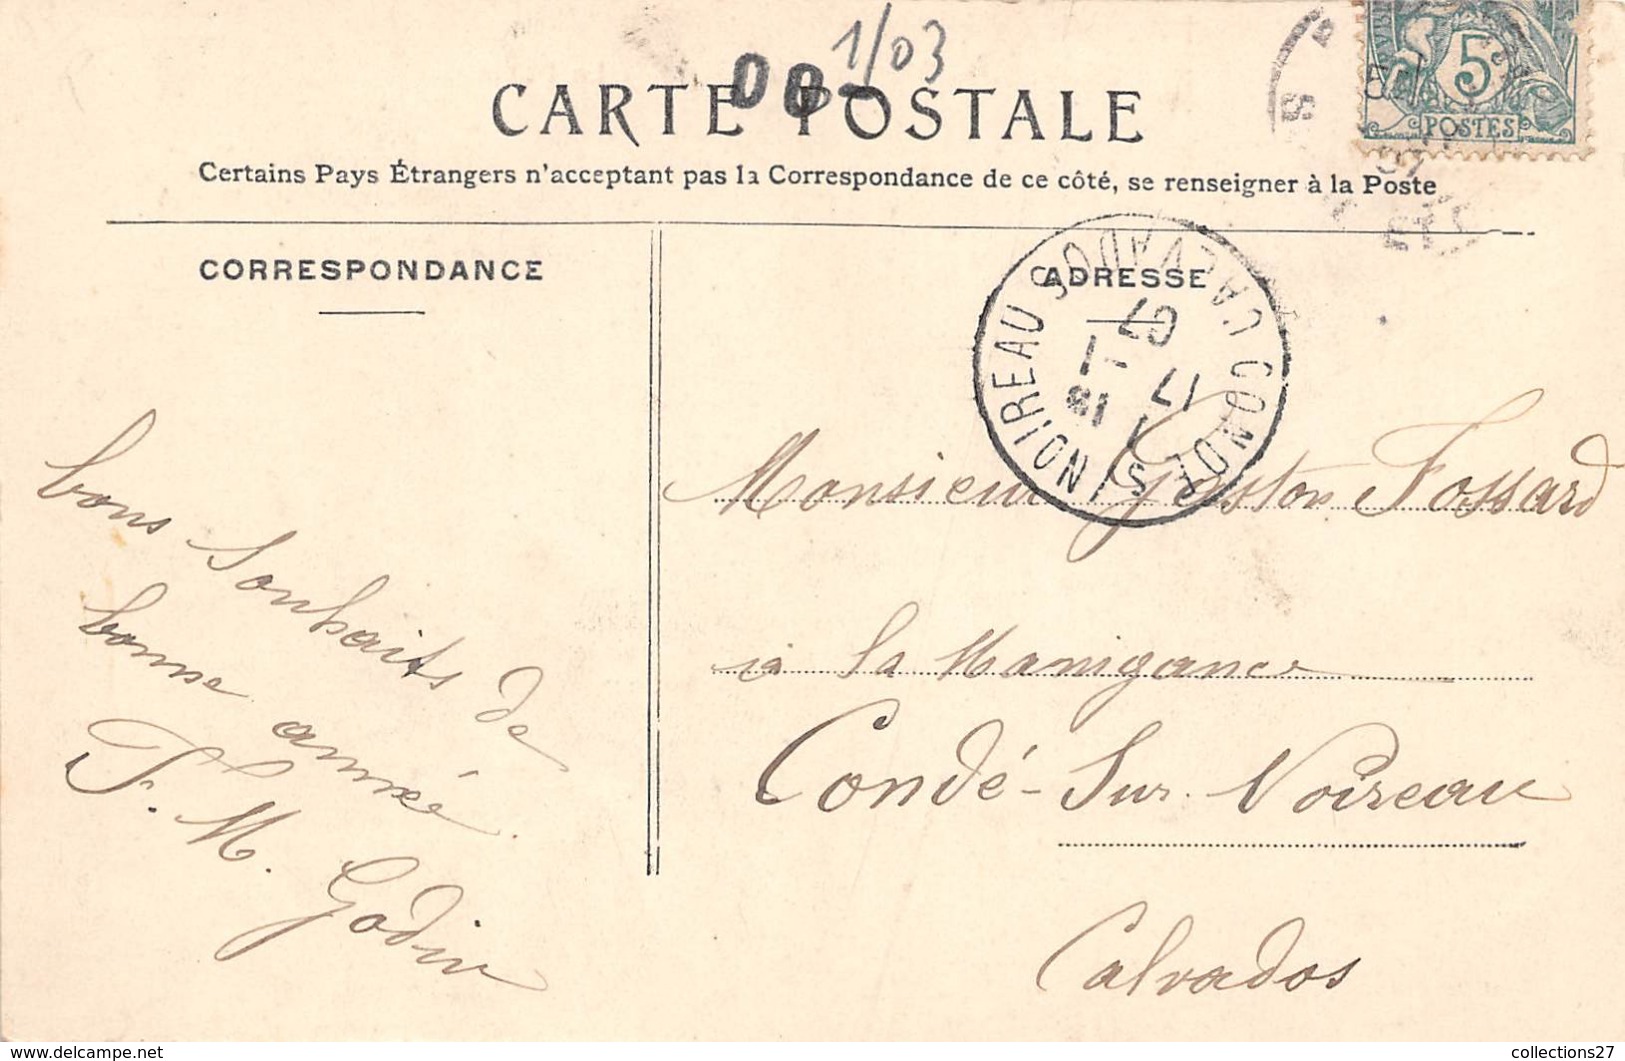 1/03
00
CARTE POSTALE
Certains Pays Étrangers n'acceptant pas la Correspondance de ce côté, se renseigner à la Poste
5
POSTES
CORRESPONDANCE
ADRESSE
CONDÉ S/ NOIREAU CALVADOS
17
1 - 1
07
bons Souhaits de
bonne année
F. M. Godin
Monsieur Gaston Fossard
à la Manigance
Condé-Sur Noireau
Calvados
www.delcampe.net
collections27